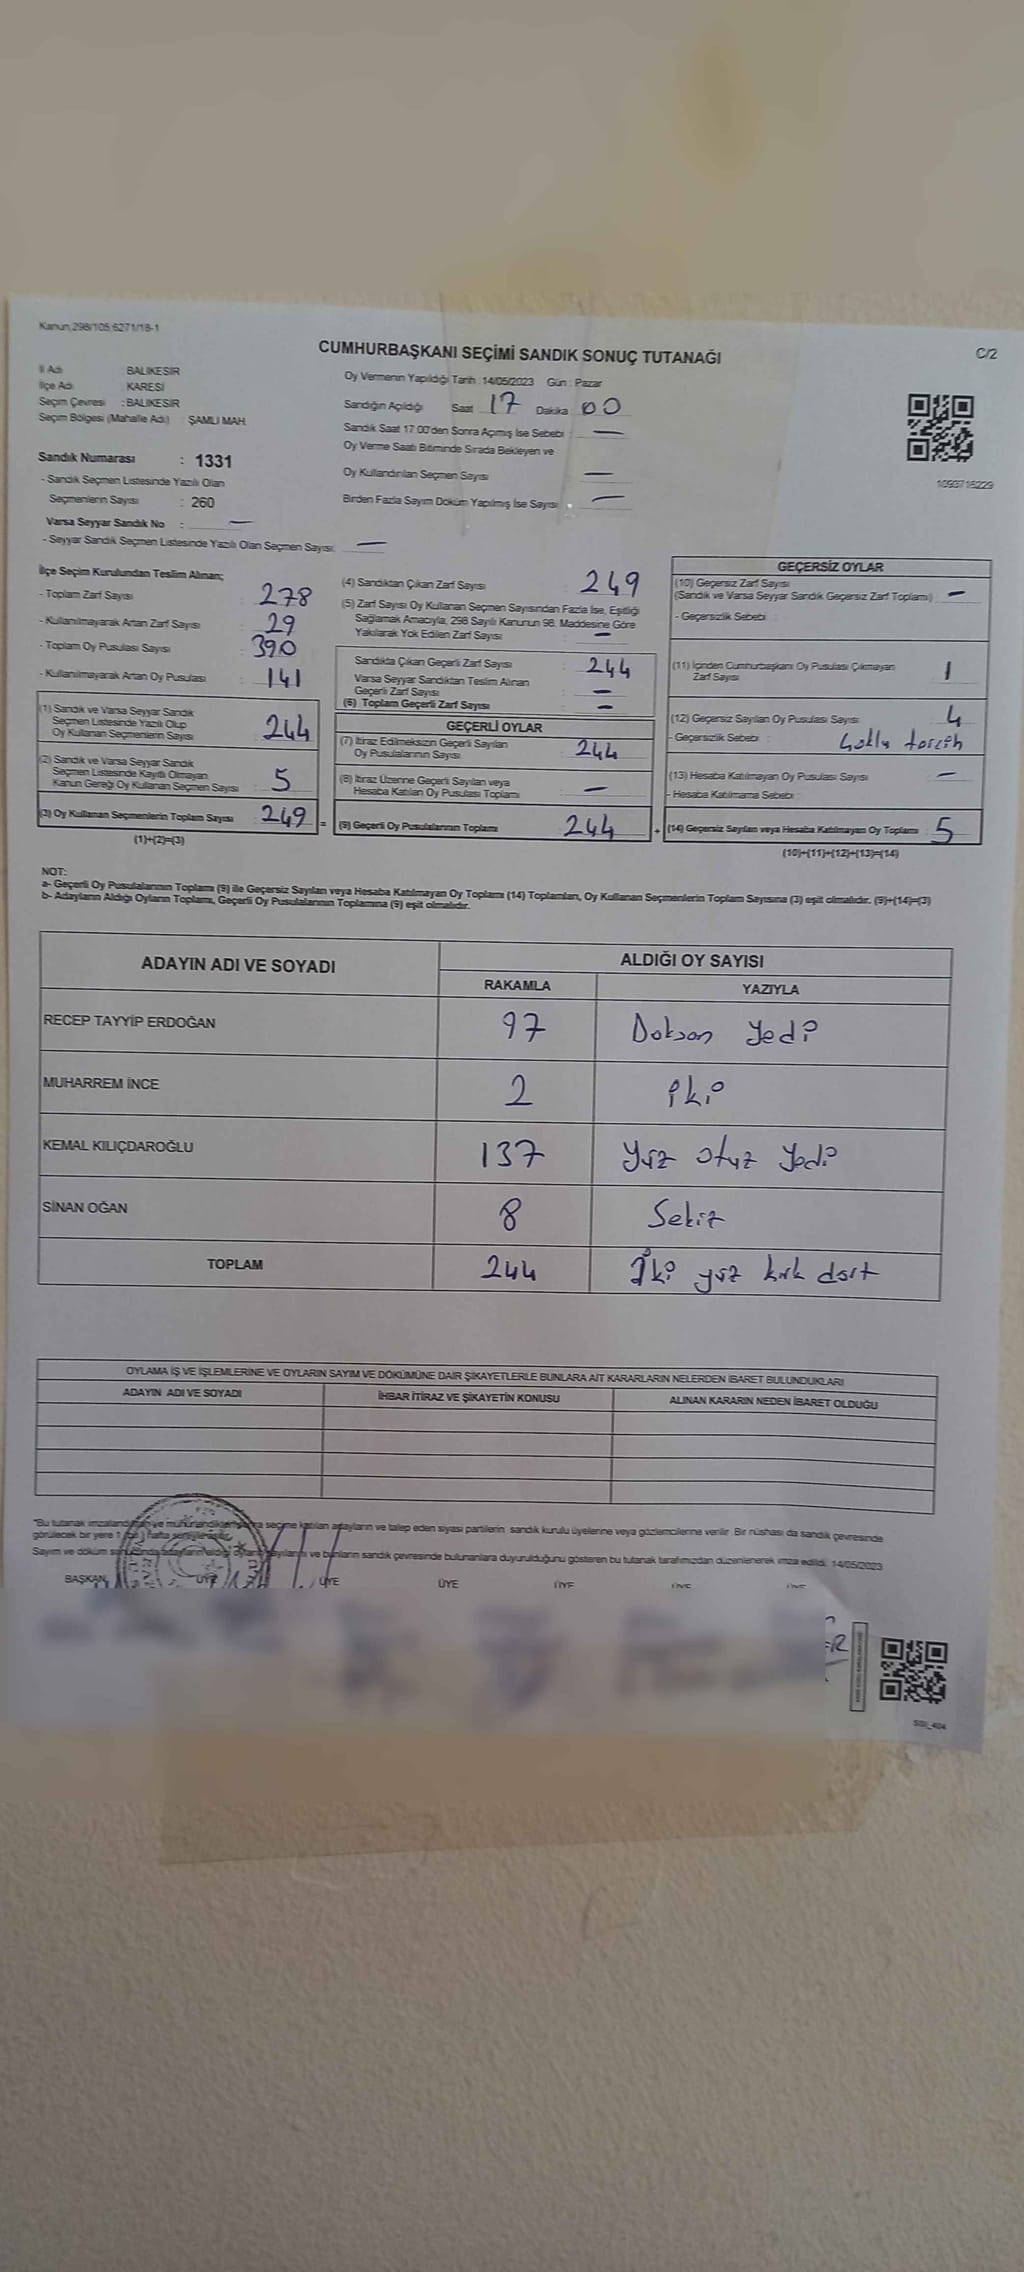 Kanun,298/105,6271/18-1
CUMHURBAŞKANI SEÇİMİ SANDIK SONUÇ TUTANAĞI
C/2
İl Adı BALIKESİR
İlçe Adı : KARESİ
Seçim Çevresi : BALIKESİR
Seçim Bölgesi (Mahalle Adı) : ŞAMLI MAH.
Oy Vermenin Yapıldığı Tarih :14/05/2023 Gün : Pazar
Sandığın Açıldığı Saat 17 Dakika : 00
Sandık Saat 17:00'den Sonra Açılmış İse Sebebi : —
Oy Verme Saati Bitiminde Sırada Bekleyen ve
Oy Kullandırılan Seçmen Sayısı —
Birden Fazla Sayım Döküm Yapılmış İse Sayısı : —
1093716229
Sandık Numarası : 1331
- Sandık Seçmen Listesinde Yazılı Olan
Seçmenlerin Sayısı : 260
Varsa Seyyar Sandık No : —
- Seyyar Sandık Seçmen Listesinde Yazılı Olan Seçmen Sayısı: —
İlçe Seçim Kurulundan Teslim Alınan;
- Toplam Zarf Sayısı : 278
- Kullanılmayarak Artan Zarf Sayısı : 29
- Toplam Oy Pusulası Sayısı : 390
- Kullanılmayarak Artan Oy Pusulası : 141
(1) Sandık ve Varsa Seyyar Sandık
Seçmen Listesinde Yazılı Olup
Oy Kullanan Seçmenlerin Sayısı : 244
(2) Sandık ve Varsa Seyyar Sandık
Seçmen Listesinde Kayıtlı Olmayan
Kanun Gereği Oy Kullanan Seçmen Sayısı : 5
(3) Oy Kullanan Seçmenlerin Toplam Sayısı : 249 =
(1)+(2)=(3)
(4) Sandıktan Çıkan Zarf Sayısı : 249
(5) Zarf Sayısı Oy Kullanan Seçmen Sayısından Fazla İse, Eşitliği
Sağlamak Amacıyla, 298 Sayılı Kanunun 98. Maddesine Göre
Yakılarak Yok Edilen Zarf Sayısı : —
Sandıkta Çıkan Geçerli Zarf Sayısı : 244
Varsa Seyyar Sandıktan Teslim Alınan
Geçerli Zarf Sayısı : —
(6) Toplam Geçerli Zarf Sayısı : —
GEÇERLİ OYLAR
(7) İtiraz Edilmeksizin Geçerli Sayılan
Oy Pusulalarının Sayısı : 244
(8) İtiraz Üzerine Geçerli Sayılan veya
Hesaba Katılan Oy Pusulası Toplamı : —
(9) Geçerli Oy Pusulalarının Toplamı : 244 +
GEÇERSİZ OYLAR
(10) Geçersiz Zarf Sayısı
(Sandık ve Varsa Seyyar Sandık Geçersiz Zarf Toplamı) : —
- Geçersizlik Sebebi :
(11) İçinden Cumhurbaşkanı Oy Pusulası Çıkmayan
Zarf Sayısı : 1
(12) Geçersiz Sayılan Oy Pusulası Sayısı : 4
- Geçersizlik Sebebi : Çoklu tercih
(13) Hesaba Katılmayan Oy Pusulası Sayısı : —
- Hesaba Katılmama Sebebi :
(14) Geçersiz Sayılan veya Hesaba Katılmayan Oy Toplamı : 5
(10)+(11)+(12)+(13)=(14)
NOT:
a- Geçerli Oy Pusulalarının Toplamı (9) ile Geçersiz Sayılan veya Hesaba Katılmayan Oy Toplamı (14) Toplamları, Oy Kullanan Seçmenlerin Toplam Sayısına (3) eşit olmalıdır. (9)+(14)=(3)
b- Adayların Aldığı Oyların Toplamı, Geçerli Oy Pusulalarının Toplamına (9) eşit olmalıdır.
ADAYIN ADI VE SOYADI ALDIĞI OY SAYISI
RAKAMLA YAZIYLA
RECEP TAYYİP ERDOĞAN 97 Doksan Yedi
MUHARREM İNCE 2 iki
KEMAL KILIÇDAROĞLU 137 Yüz otuz Yedi
SİNAN OĞAN 8 Sekiz
TOPLAM 244 İki yüz kırk dört
OYLAMA İŞ VE İŞLEMLERİNE VE OYLARIN SAYIM VE DÖKÜMÜNE DAİR ŞİKAYETLERLE BUNLARA AİT KARARLARIN NELERDEN İBARET BULUNDUKLARI
ADAYIN ADI VE SOYADI İHBAR İTİRAZ VE ŞİKAYETİN KONUSU ALINAN KARARIN NEDEN İBARET OLDUĞU
"Bu tutanak imzalandıktan ve mühürlendikten sonra seçime katılan adayların ve talep eden siyasi partilerin sandık kurulu üyelerine veya gözlemcilerine verilir. Bir nüshası da sandık çevresinde
görülecek bir yere 1 (bir) hafta
Sayım ve döküm sonucunda adayların aldığı oyların sayılarını ve bunların sandık çevresinde bulunanlara duyurulduğunu gösteren bu tutanak tarafımızdan düzenlenerek imza edildi. 14/05/2023
BAŞKAN ÜYE ÜYE ÜYE ÜYE ÜYE ÜYE